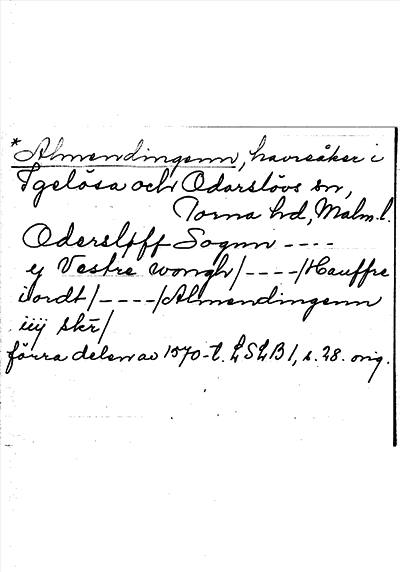 *Almendingenn, havreåker i
Igelösa och Odarslövs sn,
Torna hd, Malm.l.
Oderslöff Sognn ----
ej Vestre wongh/----/Hauffre
iordt/----/Almendingenn
iiij skr/
förra delen av 1570-t. LSLB 1, s. 28. orig.